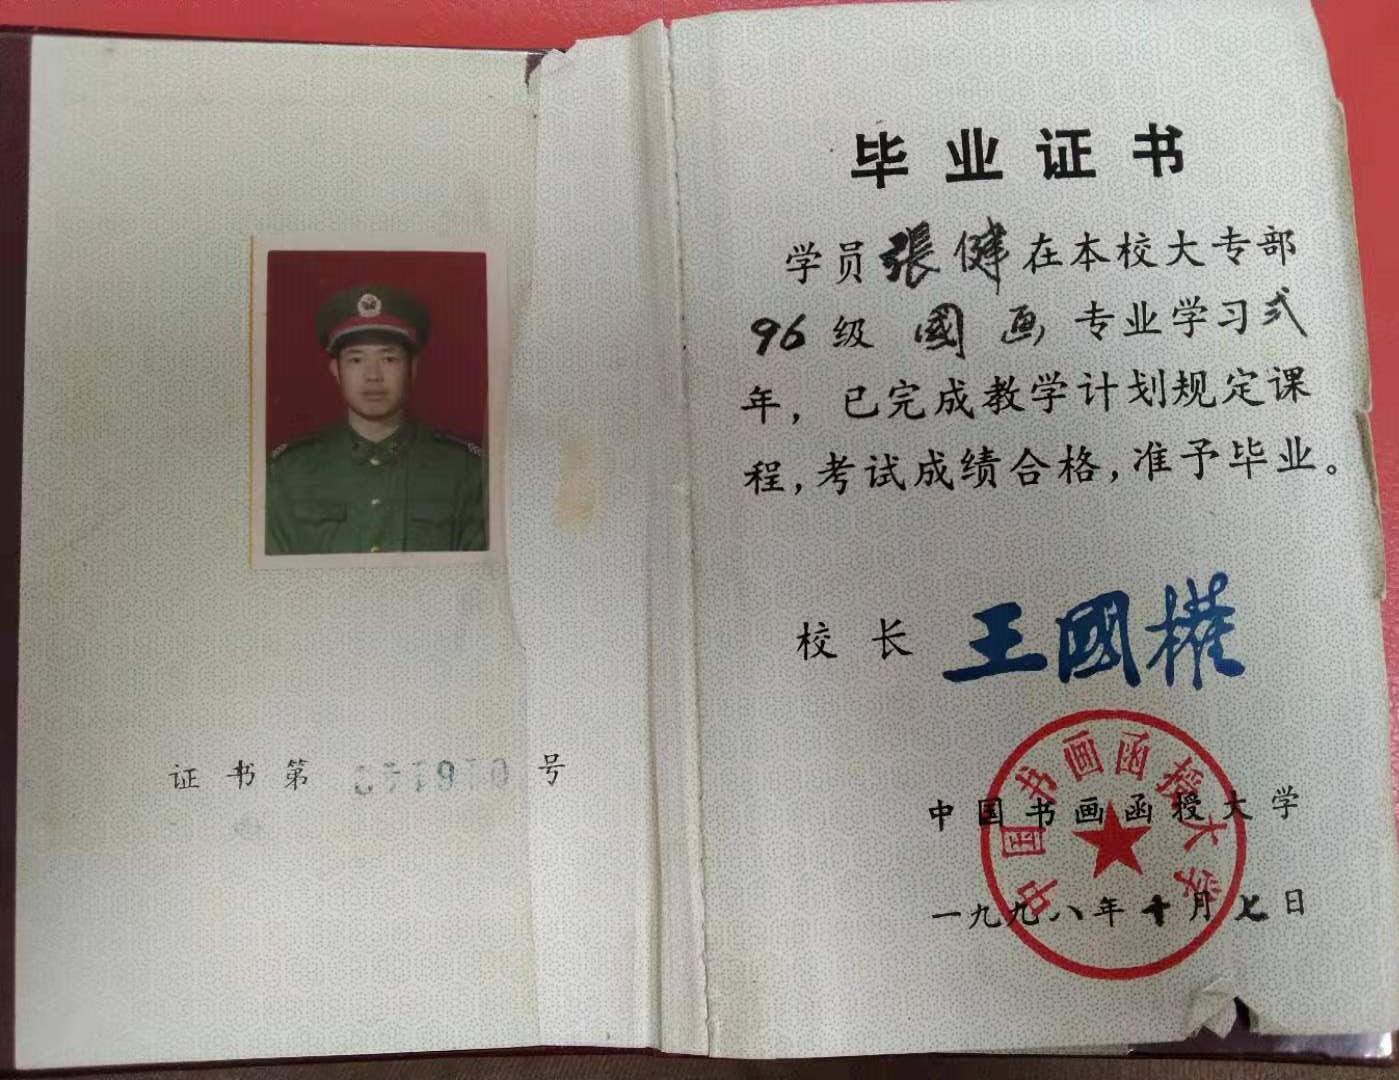 证书第 号
毕业证书
学员張健在本校大专部
96级 國画 专业学习弍
年，已完成教学计划规定课
程，考试成绩合格，准予毕业。
校长 王國權
中国书画函授大学
中国书画函授大学
一九九八年十月七日